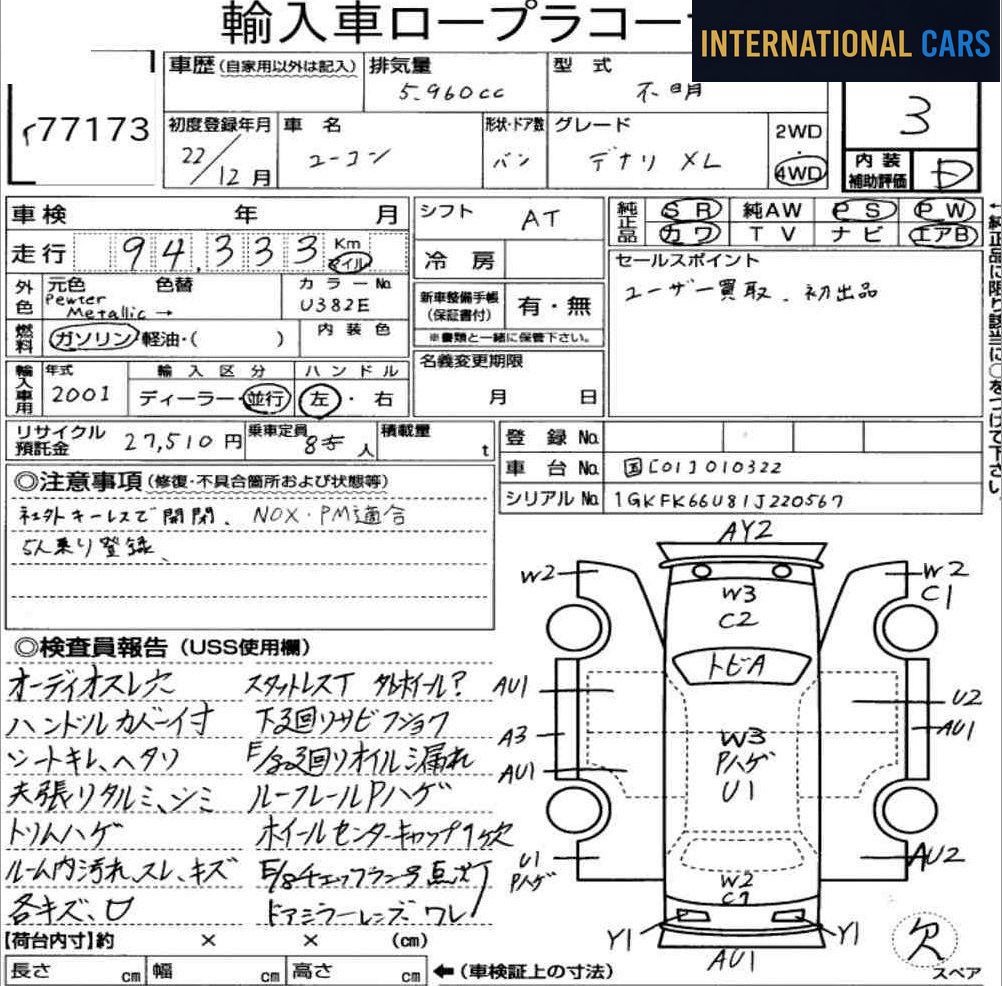 輸入車ロープラコー
INTERNATIONAL CARS
77173
車歴(自家用以外は記入)
排気量
5.960cc
型 式
不明
3
初度登録年月
22/12月
車 名
ユーコン
形状・ドア数
バン
グレード
デナリ XL
2WD
・
4WD
内装
補助評価
D
車検 年 月
走行 94,333 Km マイル
シフト AT
冷 房
純正品 SR 純AW PS PW
カワ TV ナビ エアB
外色 元色 色替
Pewter
Metallic →
カラーNo.
U382E
新車整備手帳
(保証書付)
有・無
※書類と一緒に保管下さい。
セールスポイント
ユーザー買取、初出品
燃料 ガソリン・軽油・( )
内 装 色
名義変更期限
月 日
輸入車用 年式
2001
輸 入 区 分
ディーラー・並行
ハ ン ド ル
左・右
リサイクル
預託金
27,510円
乗車定員
8 人
積載量
t
登 録 No.
車 台 No. 国[01]010322
シリアルNo. 1GKFK66U81J220567
←純正品に限り該当に○をつけて下さい。
◎注意事項(修復・不具合箇所および状態等)
社外キーレスで開閉、NOX・PM適合
5人乗り登録、
◎検査員報告(USS使用欄)
オーディオスレ穴
ハンドルカバー付
シートキレ、ヘタリ
天張リタルミ、シミ
トリムハゲ
ルーム内汚れ、スレ、キズ
各キズ、凹
スタットレスT 外ホイール?
下廻リサビフショク
E/g廻リオイル漏れ
ルーフレールPハゲ
ホイールセンターキャップ1ケ欠
E/gチェックランプ点灯
ドアミラーレンズワレ
AY2
W2
W2
C1
W3
C2
トビA
AU1
U2
AU1
A3
AU1
W3
Pハゲ
U1
U1
Pハゲ
AU2
W2
C1
Y1
Y1
AU1
欠
スペア
【荷台内寸】約 × × (cm)
長さ cm 幅 cm 高さ cm
←(車検証上の寸法)